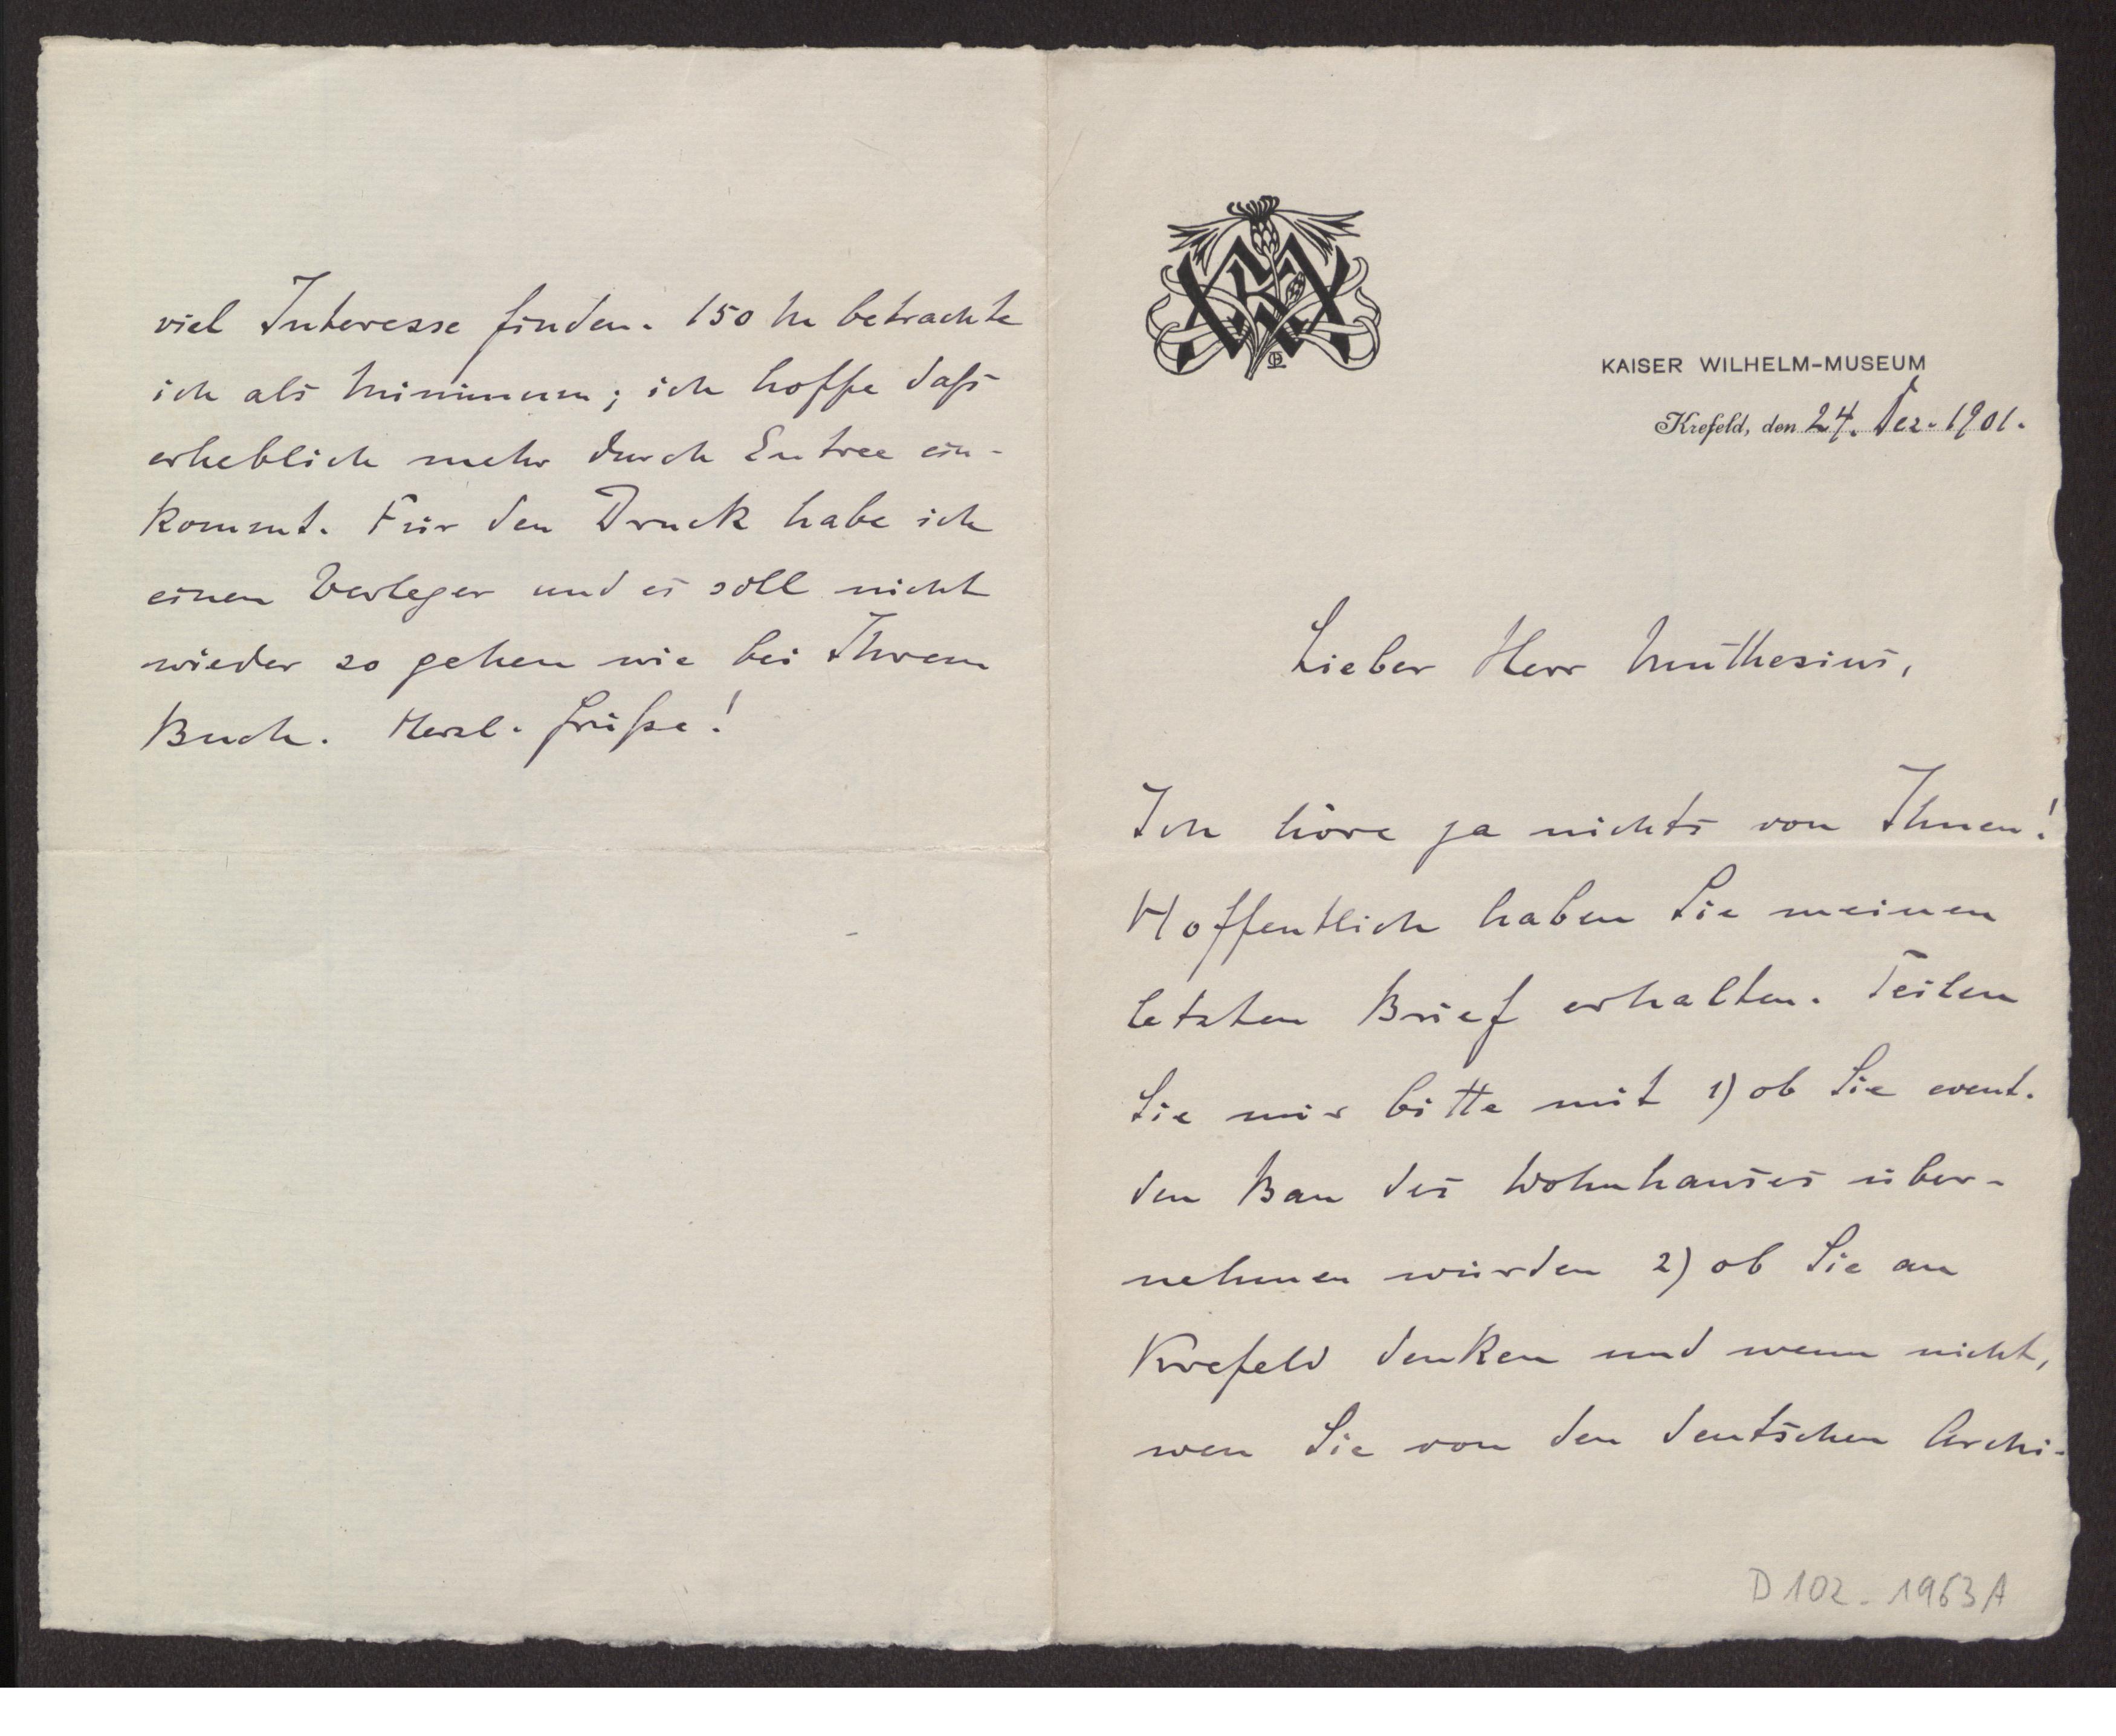 KAISER WILHELM-MUSEUM
Krefeld, den 24. Dez. 1901.
Lieber Herr Muthesius,
Ich höre ja nichts von Ihnen!
Hoffentlich haben Sie meinen
letzten Brief erhalten. Teilen
Sie mir bitte mit 1) ob Sie event.
den Bau des Wohnhauses über-
nehmen würden 2) ob Sie an
Krefeld denken und wenn nicht,
wen Sie von den deutschen Archi-
D 102-1963 A
viel Interesse finden. 150 M betrachte
ich als Minimum; ich hoffe daß
erheblich mehr durch Entree ein-
kommt. Für den Druck habe ich
einen Verleger und es soll nicht
wieder so gehen wie bei Ihrem
Buch. Herzl. Grüße!